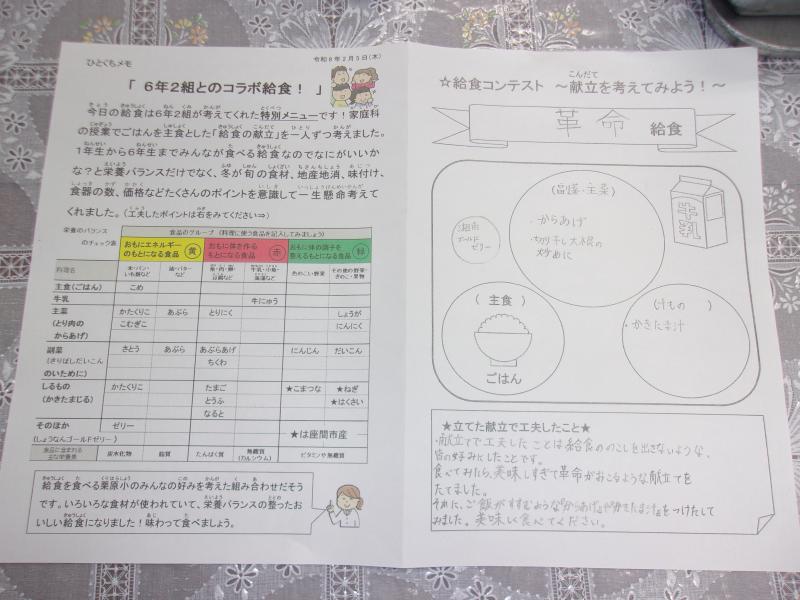 ひとくちメモ
令和8年2月5日(木)
「 6年2組とのコラボ給食! 」
今日の給食は6年2組が考えてくれた特別メニューです!家庭科
の授業でごはんを主食とした「給食の献立」を一人ずつ考えました。
1年生から6年生までみんなが食べる給食なのでなにがいいか
な?と栄養バランスだけでなく、冬が旬の食材、地産地消、味付け、
食器の数、価格などたくさんのポイントを意識して一生懸命考えて
くれました。(工夫したポイントは右をみてください⇒)
栄養のバランスのチェック表
食品のグループ(料理に使う食品を記入してみましょう)
おもにエネルギーのもとになる食品 黄
おもに体を作るもとになる食品 赤
おもに体の調子を整えるもとになる食品 緑
料理名
米・パン・いも類など
油・バターなど
魚・肉・卵・豆類など
牛乳・小魚・海藻など
色のこい野菜
その他の野菜・きのこ・果物
主食(ごはん) こめ
牛乳 牛にゅう
主菜(とり肉のからあげ)
かたくりこ あぶら とりにく しょうが
こむぎこ にんにく
副菜(きりぼしだいこんのいために)
さとう あぶら あぶらあげ にんじん だいこん
ちくわ
しるもの(かきたまじる)
かたくりこ たまご ★こまつな ★ねぎ
とうふ ★はくさい
なると
そのほか ゼリー
(しょうなんゴールドゼリー)
★は座間市産
食品に含まれる主な栄養素
炭水化物 脂質 たんぱく質 無機質(カルシウム) ビタミンや無機質
給食を食べる栗原小のみんなの好みを考えた組み合わせだそう
です。いろいろな食材が使われていて、栄養バランスの整ったお
いしい給食になりました!味わって食べましょう。
☆給食コンテスト ~献立を考えてみよう!~
革命 給食
(副菜・主菜)
・からあげ
・切り干し大根の
炒めに
ゴールド
ゼリー
牛乳
(主食)
ごはん
(汁もの)
・かきたま汁
★立てた献立で工夫したこと★
・献立てで工夫したことは給食ののこしを出さないような、
皆の好みにしたことです。
食べてみたら、美味しすぎて革命がおこるような献立てを
たてました。
それに、ご飯がすすむような『からあげ』や『かきたま汁』をつけたして
みました。美味しく食べてください。